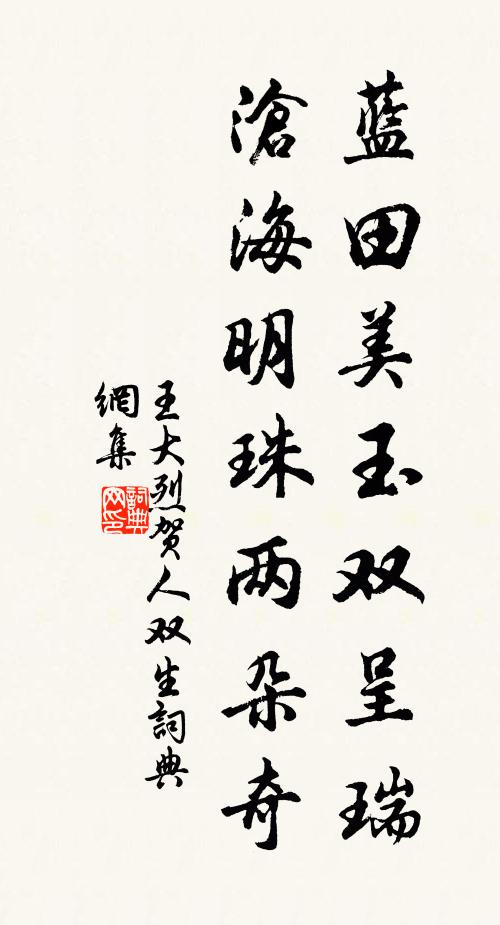 蓝田美玉双呈瑞
滄海明珠两朵奇
王大烈贺人双生詞典
網集
詞典
网印